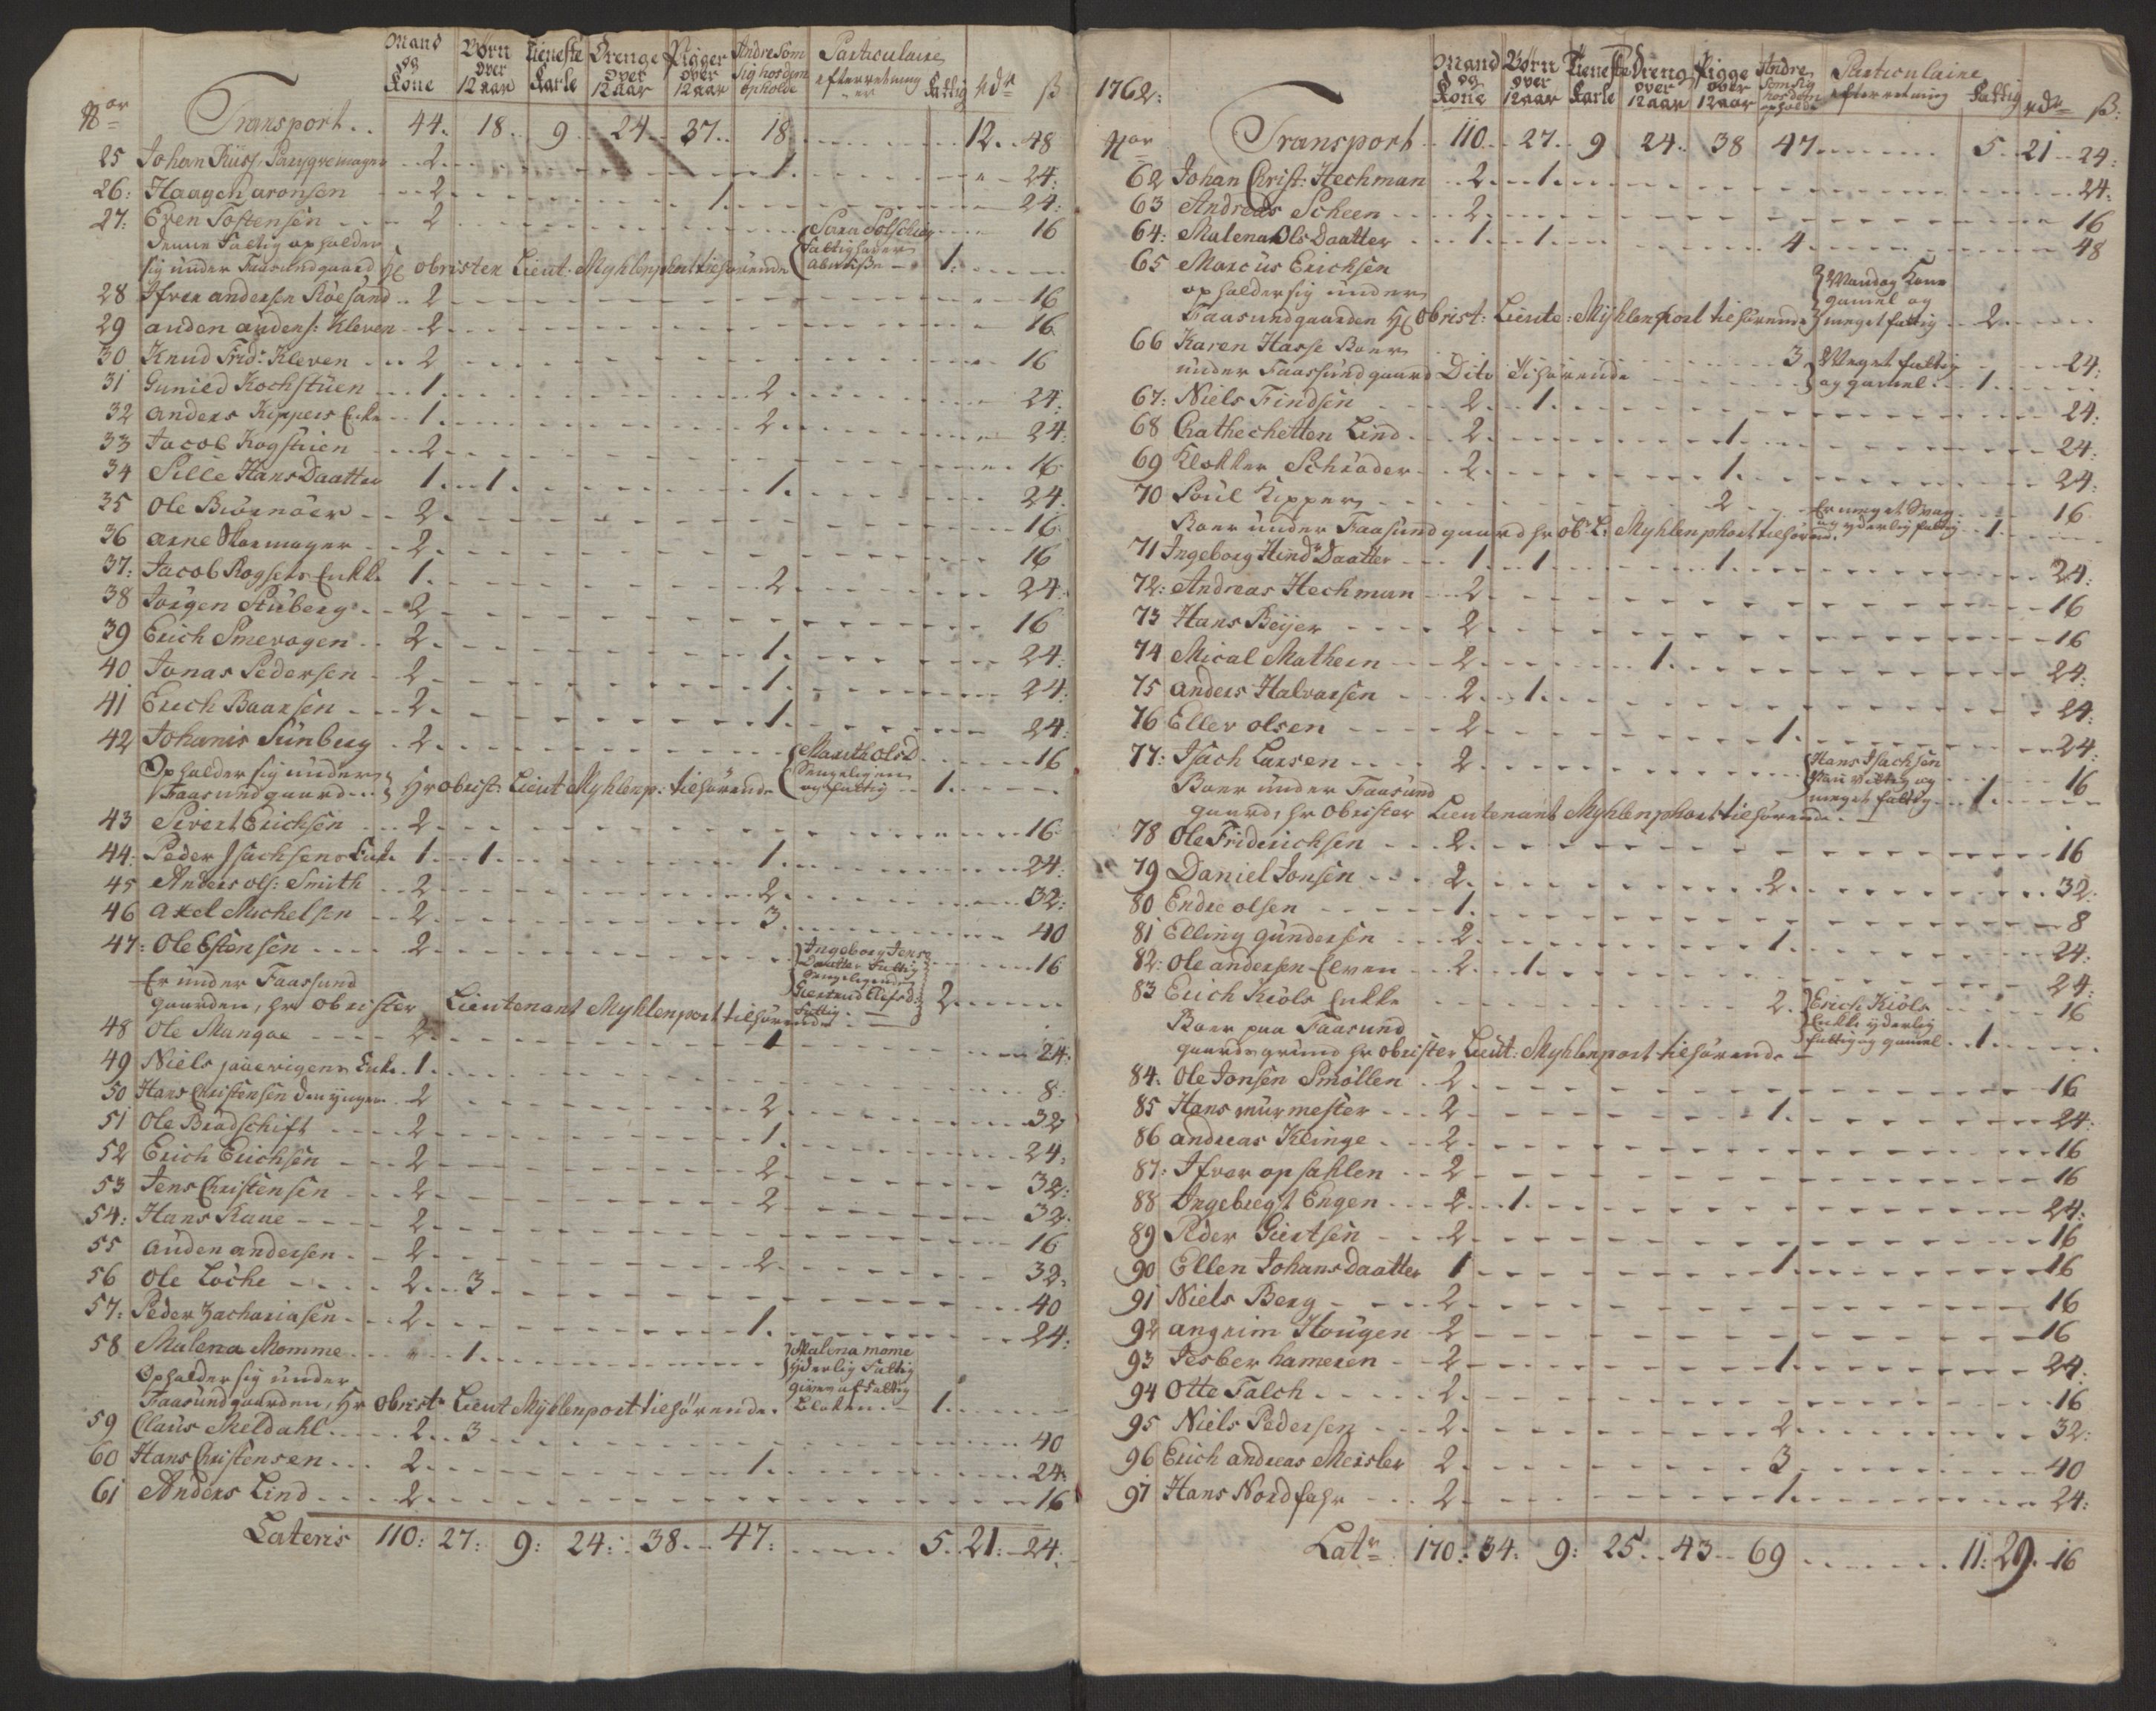 Mand og Kone Børn over 12 aar Tieneste Karle Drenge over 12 aar Piger over 12 aar Andre som sig hos dem opholde Particulaire efterretning er fattig rdr ß
Nor Transport .. 44. 18. 9. 24. 37. 18 12. 48
25 Johan Küss, 2. 1. 24:
26: Haagen aronsen 2. 1. 24:
27: Even Tostensen 2 Sara 16
Denne fattig opholder fattig
sig under Faasundgaard Hr Obrister Lieut. Myhlenphort tilhørende 1.
28 Ifver andersen Röesand 2 16
29 auden andens: Kleven 2. 16
30 Knud Frid: Kleven 2 16
31 Gunild Kochstüen 1. 2 24:
32 anders Kippers Enke 1. 2. 24:
33 Jacob Kogstüen 2 16
34 Sille Hans Daatter 1. 1. 1. 24:
35 Ole Biörnöer 2. 16
36 arne 2. 16
37: Jacob Rogsets Enkke 1. 2. 24:
38 Jörgen Stüberg 2 16
39 Erich Smevogen 2. 1. 24:
40 Jonas Pedersen 2 1. 24:
41 Erich Baarsen 2. 1. 24:
42 Johanis Sünberg 2. Marith Olsd 16
Opholder sig under Sengeligen
Faasundgaard Hr Obrist: Lieut Myhlenp: tilhørende og fattig 1.
43 Sivert Erichsen 2. 16
44: Peder Isachsens Enke 1. 1. 1. 24:
45 Anders ols: Smith 2 2. 32:
46 axel Michelsen 2. 3. 40
47: Ole Estensen 2. Ingeborg Jens 16
Er under Faassund Daatter fattig Sengeligende
gaarden, hr Obrister Lieutenant Myhlenport tilhørende Giertrud fattig 2.
48 Ole Mangoe 2. 1 24:
49 Niels Enke. 1. 8:
50 Hans Christensen den yngere 2 2. 32
51 Ole Brodschift 2. 1. 24:
52 Erich Erichsen 2 2. 32:
53 Jens Christensen 2. 2 32:
54: Hans Raue 2. 16
55 auden andersen 2. 2. 32:
56 Ole Löche 2. 3 40
57: Peder Zachariasen 2. 1. 24:
58 Malena Momme 1. Malena mome
Opholder sig under yderlig fattig given af fattig
Faasundgaarden, Hr Obristr Lieut Myhlenport tilhørende. 1.
59 Claus Meldahl 2. 3 40
60 Hans Christensen 2. 1. 24:
61 Anders Lind 2. 16
Lateris 110: 27: 9: 24: 38. 47: 5. 21: 24:
1762: Mand og Kone Børn over 12 aar Tieneste Karle Dreng over 12 aar Pige over 12 aar Andre som sig hos dem opholde Particulaire efterretning fattig rdr ß:
Nor Transport 110. 27. 9 24. 38 47 5. 21 24:
62 Johan Christ: Hechman 2. 1. 24:
63 Andreas Scheen 2. 16
64: Malena Ols Daatter 1. 1. 4. 48
65 Marcus Erichsen
opholder sig under Mand og Kone gamel og
Faasundgaarden Hr Obrist: Lieute: Myhlenport tilhørende meget fattig 2.
66 Karen Hasse Boer 3 Meget fattig 24:
under Faassundgaard Dito tilhørende og gamel 1.
67: Niels Findsen 2. 1. 24:
68 Chathechetten Lind 2. 1. 24:
69 Klokker Schrøder 2. 1. 24:
70 Poul Kipper 2 Er meget Svag 16
Boer under Faasundgaard hr Ob: L: Myhlenphort tilhørend: og yderlig fattig 1.
71 Ingeborg Hind: Daatter 1. 1. 1. 24:
72: Andreas Hechman 2. 16
73 Hans Beijer 2. 16
74 Mical Mathein 2. 1. 24:
75 anders Halvorsen 2. 1. 24:
76 Eller olsen 2. 1. 24:
77: Isach Larsen 2. Hans Isachsen 16
Boer under Faasund Van Vittig og
gaard, hr Obrister Lieutenant Myhlenphort tilhørende meget fattig 1.
78 Ole Friderichsen 2. 16
79 Daniel Jonsen 2. 2. 32:
80 Endre olsen 1. 8
81 Elling gundersen 2. 1. 24:
82: Ole andersen Elven 2. 1. 24:
83 Erich Kiöls Enkke 2. Erich Kiöls 16
Boer paa Faasund Enkke yderlig
gaards grund hr Obrister Lieut: Myhlenport tilhørende fattig og gamel 1.
84: Ole Jonsen Smöllen 2. 16
85 Hans murmester 2. 1. 24:
86 andreas Klinge 2. 16
87: Ifver opsahlen 2 16
88 Ingebregt Engen 2. 1. 24:
89 Peder Giertsen 2. 16
90 Ellen Johans daatter 1 1. 16
91 Niels Berg 2. 16
92 angrim Hougen 2 16
93 Jesber hameren 2 1. 24:
94 Otte Falch 2. 16
95 Niels Pedersen 2. 2. 32:
96 Erich andreas Meisler 2. 3 40
97 Hans Nordfahr 2. 1. 24:
Latr 170: 34. 9: 25. 43 69 11: 29. 16